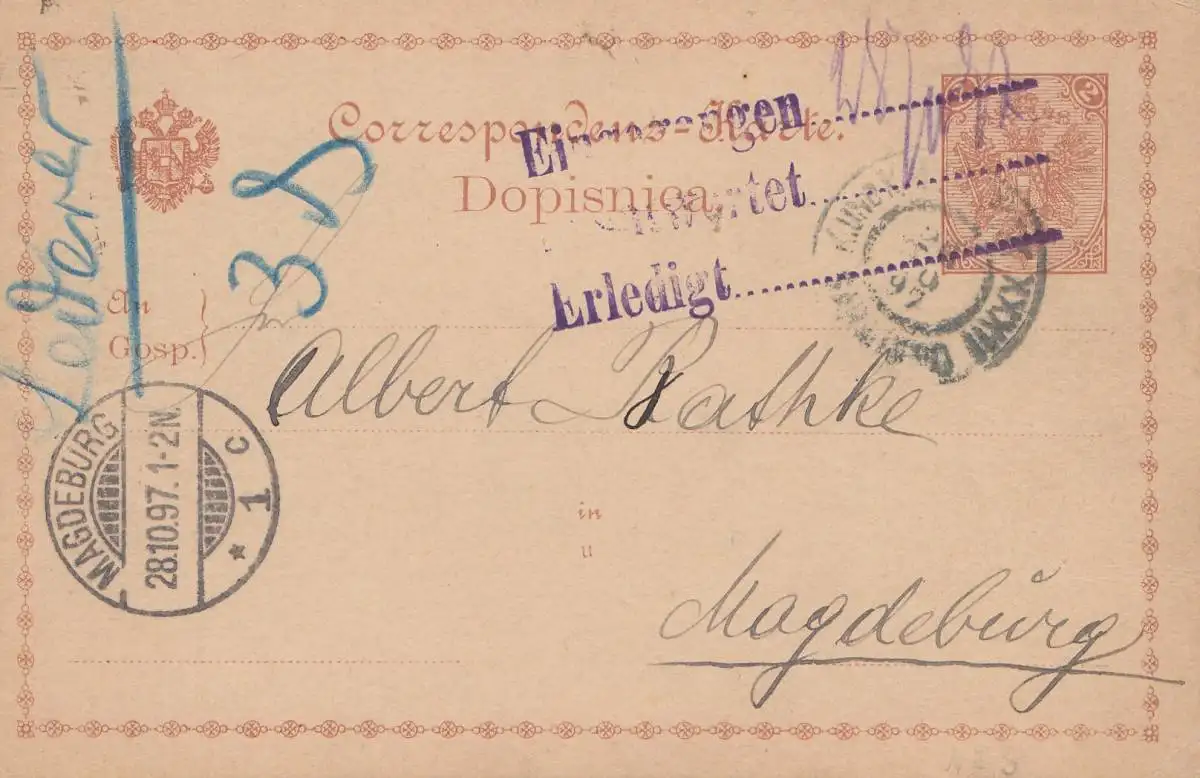 Correspondenz-Karte.
Dopisnica
2
Eingegangen
Beantwortet
Erledigt
Lederer
38
An
Gosp.
Albert Rathke
in
u
Magdeburg
MAGDEBURG
28.10.97. 1-2N.
* 1 c
XXXVII